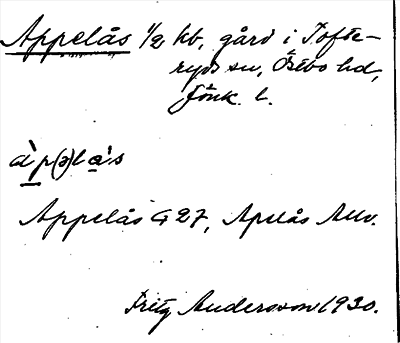 Appelås 1/2 kb, gård i Tofte-
ryds sn, Östbo hd,
Jönk. l.
àp(ə)lás
Appelås G 27, Apelås Allv.
Fritz Andersson 1930.